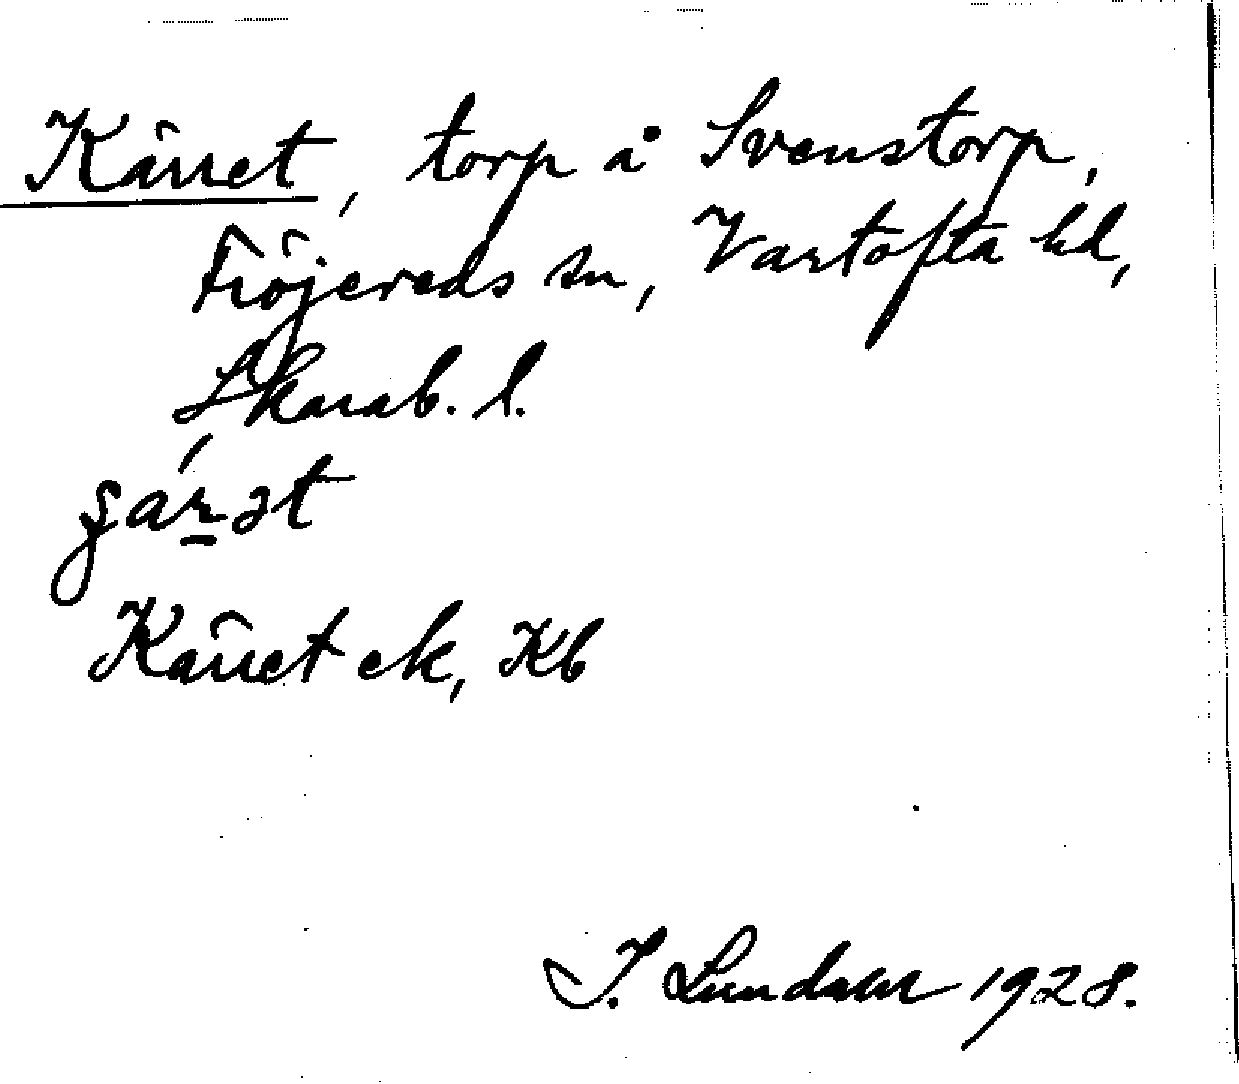 Kärret, torp å Svenstorp,
Fröjereds sn, Vartofta hd,
Skarab. l.
Kärret ek, Kb
I. Lundahl 1928.